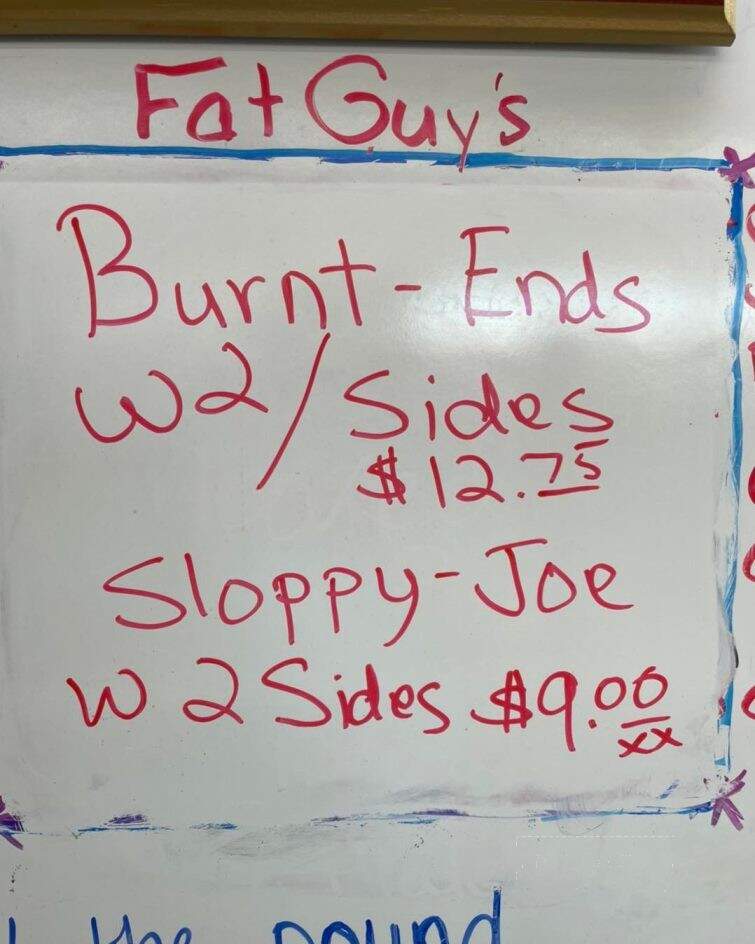 Fat Guy's
Burnt-Ends
W2/Sides
$12.75
Sloppy-Joe
W 2 Sides $9.00
xx
the pound